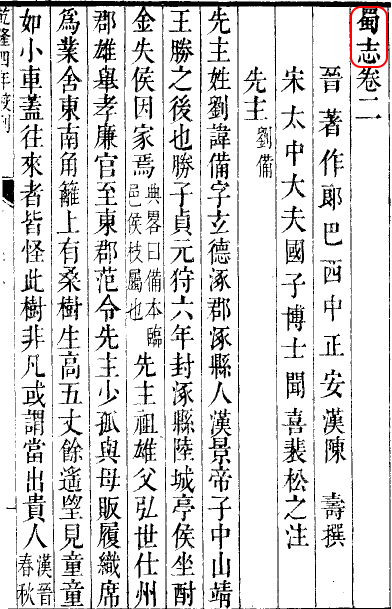 蜀志卷二
晉著作郎巴西中正安漢陳壽撰
宋太中大夫國子博士聞喜裴松之注
先主劉備
先主姓劉諱備字玄德涿郡涿縣人漢景帝子中山靖
王勝之後也勝子貞元狩六年封涿縣陸城亭侯坐酎
金失侯因家焉典畧曰備本臨邑侯枝屬也先主祖雄父弘世仕州
郡雄舉孝廉官至東郡范令先主少孤與母販履織席
爲業舍東南角籬上有桑樹生高五丈餘遙望見童童
如小車蓋往來者皆怪此樹非凡或謂當出貴人漢晉春秋
乾隆四年校刊